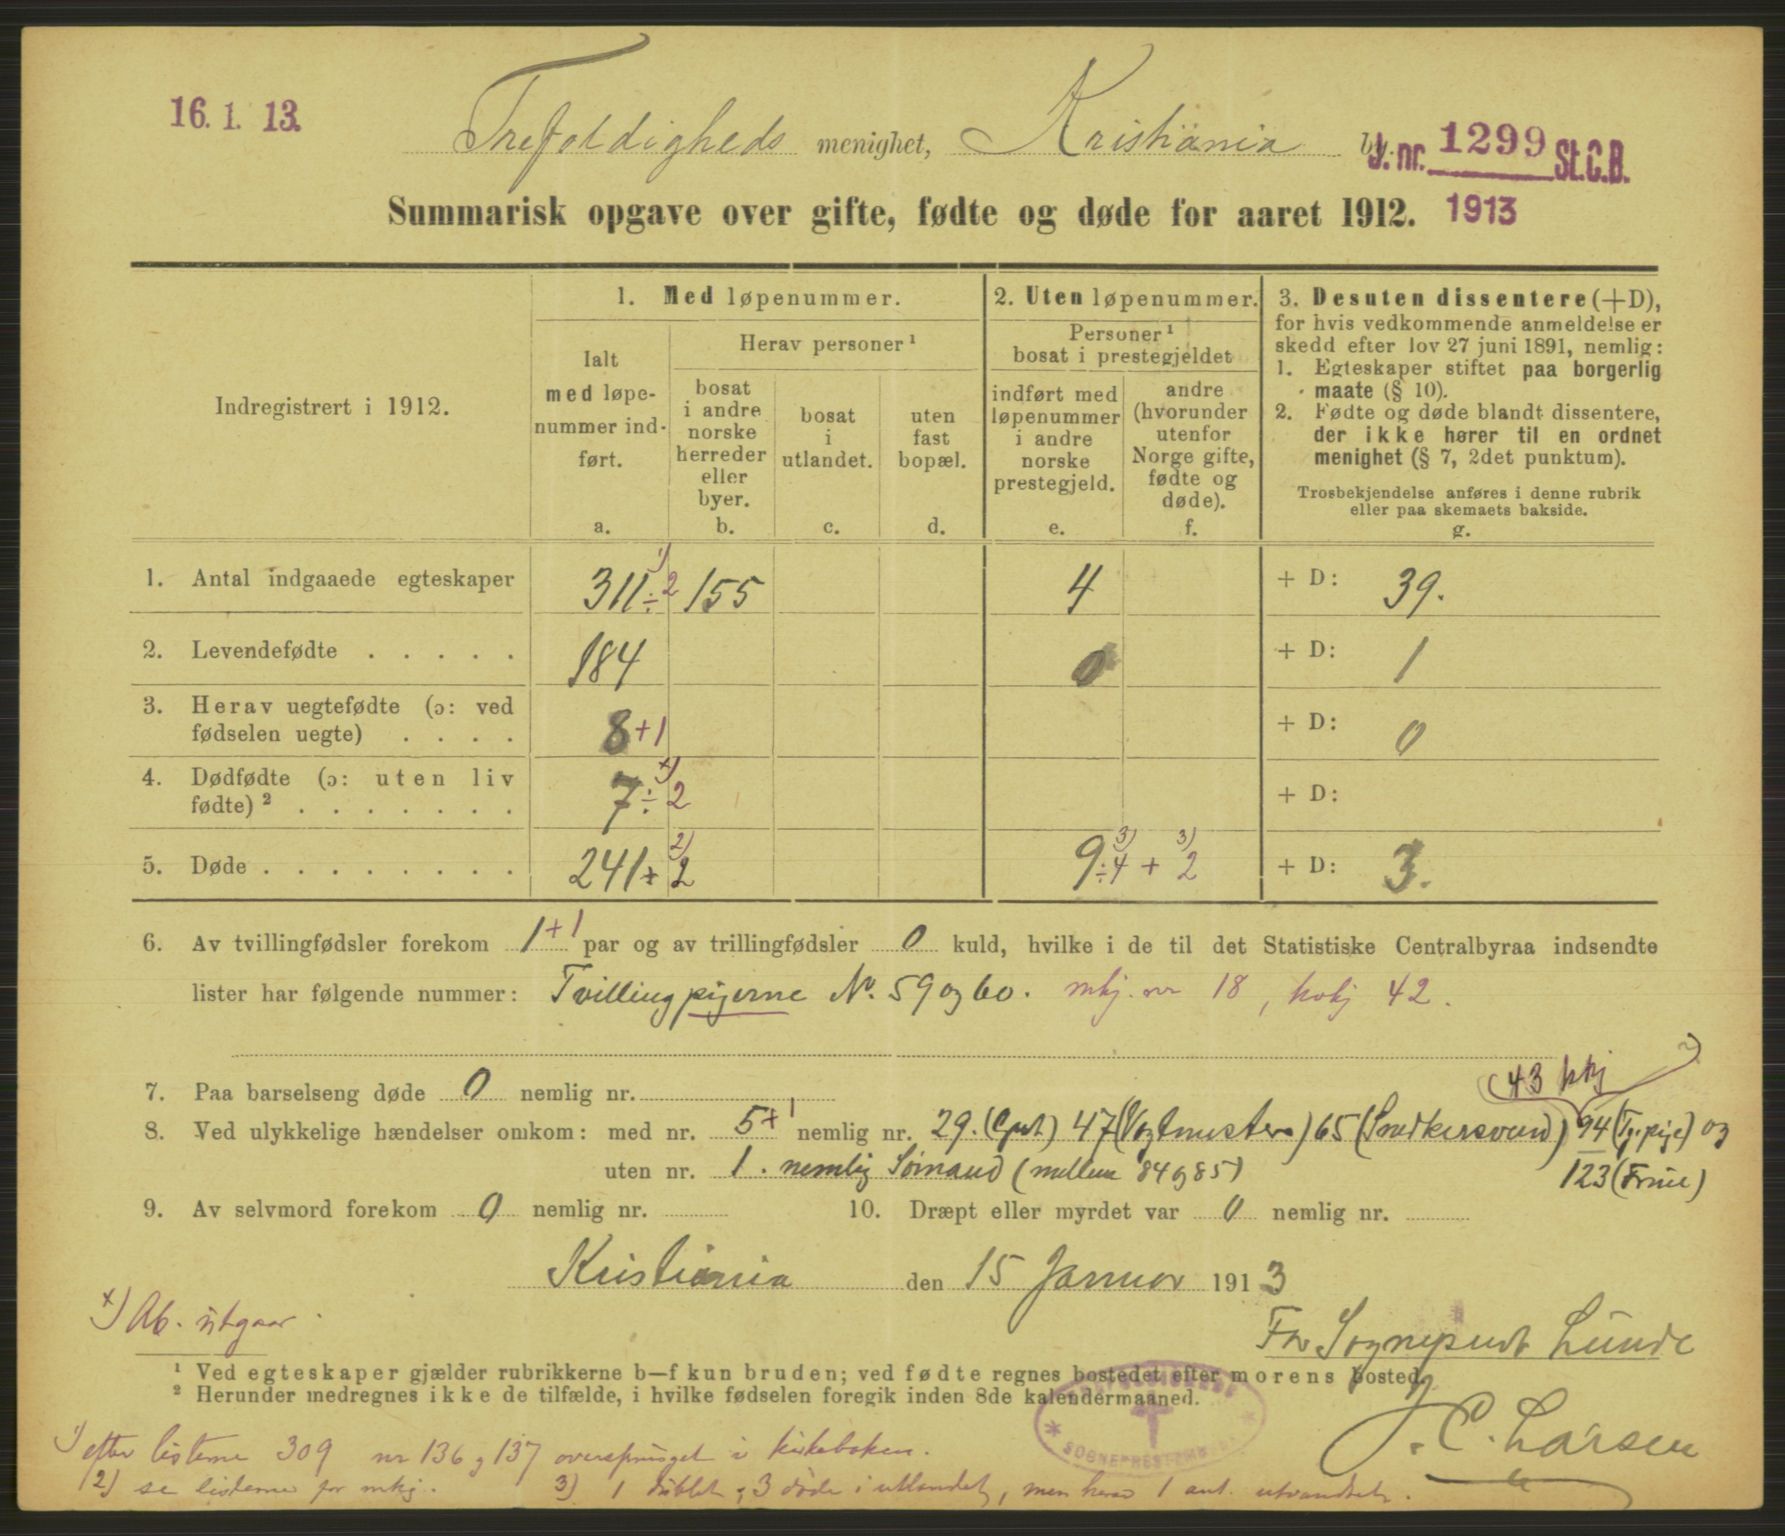 16. 1. 13.
Trefoldigheds menighet, Kristiania by.
J. nr. 1299 St.C.B.
Summarisk opgave over gifte, fødte og døde for aaret 1912. 1913
Indregistrert i 1912.
1. Med løpenummer.
Ialt
med løpe-
nummer ind-
ført.
a.
Herav personer ¹
bosat
i andre
norske
herreder
eller
byer.
b.
bosat
i
utlandet.
c.
uten
fast
bopæl.
d.
2. Uten løpenummer.
Personer ¹
bosat i prestegjeldet
indført med
løpenummer
i andre
norske
prestegjeld.
e.
andre
(hvorunder
utenfor
Norge gifte,
fødte og
døde).
f.
3. Desuten dissentere (+D),
for hvis vedkommende anmeldelse er
skedd efter lov 27 juni 1891, nemlig:
1. Egteskaper stiftet paa borgerlig
maate (§ 10).
2. Fødte og døde blandt dissentere,
der ikke hører til en ordnet
menighet (§ 7, 2det punktum).
Trosbekjendelse anføres i denne rubrik
eller paa skemaets bakside.
g.
1. Antal indgaaede egteskaper 311 ÷ 2 ¹) 155 4 + D: 39.
2. Levendefødte . . . . . 184 0 + D: 1
3. Herav uegtefødte (ɔ: ved
fødselen uegte) . . . . 8 + 1 + D: 0
4. Dødfødte (ɔ: uten liv
fødte) ² . . . . . . . 7 ÷ 2 ˣ) + D:
5. Døde . . . . . . . . 241 + 2 ²) 9 ÷ 4 ³) + 2 ³) + D: 3.
6. Av tvillingfødsler forekom 1 + 1 par og av trillingfødsler 0 kuld, hvilke i de til det Statistiske Centralbyraa indsendte
lister har følgende nummer: Tvillingpigerne No. 59 og 60. mkj. nr 18, kvkj 42.
7. Paa barselseng døde 0 nemlig nr.
(43 kkj 2)
8. Ved ulykkelige hændelser omkom: med nr. 5 + 1 nemlig nr. 29. 47 65 (Snedkersvend) 94 (Tj.pige) og
uten nr. 1. nemlig Sømand (mellem 84 og 85) 123 (Frue)
9. Av selvmord forekom 0 nemlig nr.
10. Dræpt eller myrdet var 0 nemlig nr.
Kristiania den 15 Januar 1913
ˣ) Ab. utgaar.
Sogneprest Lunde
¹ Ved egteskaper gjælder rubrikkerne b—f kun bruden; ved fødte regnes bostedet efter morens bosted.
² Herunder medregnes ikke de tilfælde, i hvilke fødselen foregik inden 8de kalendermaaned.
J. C. Larsen
¹) efter listerne 309 nr 136 og 137 oversprunget i kirkeboken.
2) se listerne for mkj. 3) 1 dublet, 3 døde i utlandet, men herav 1 ant. utvandret.